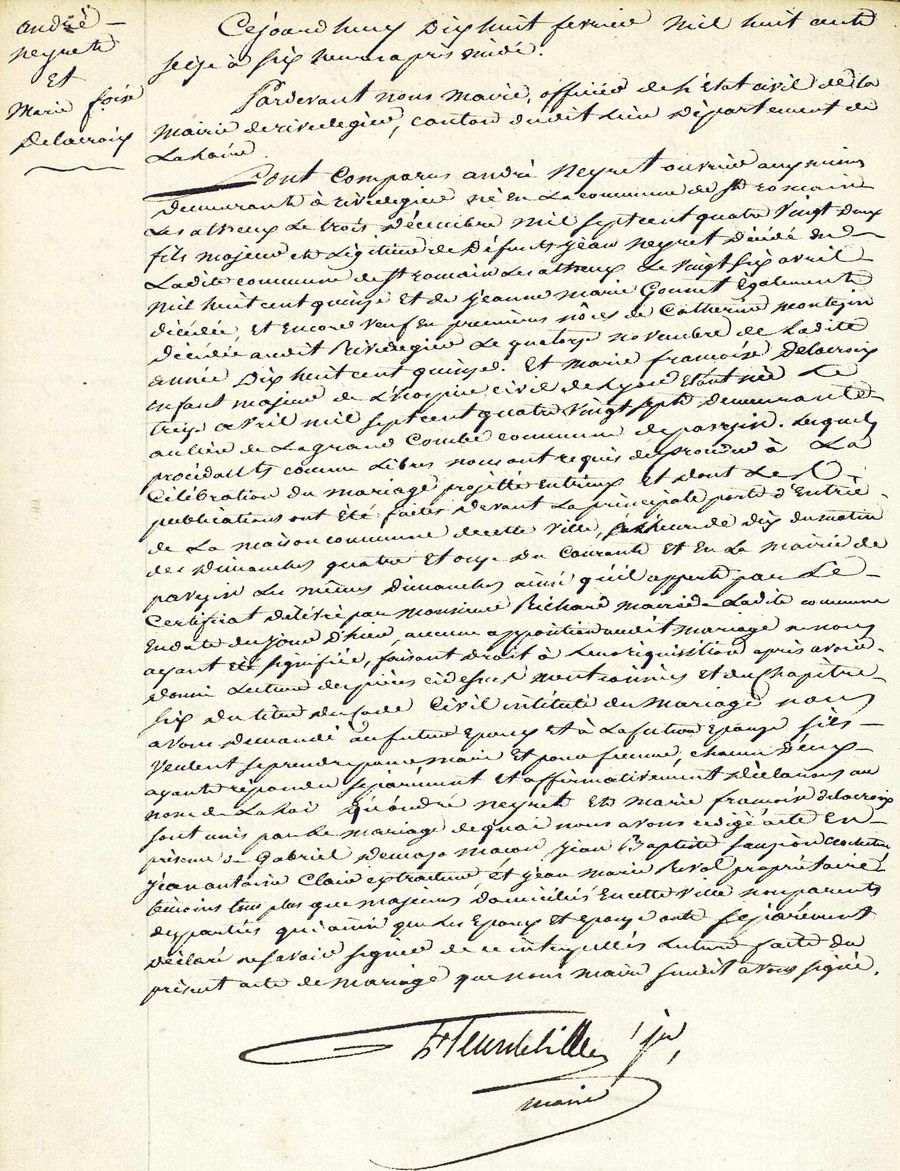 andré
neyret
Et
Marie foise
Delacroix
Cejourdhuy Dix huit fevrier mil huit cent
seize à six heures après midi.
Pardevant nous maire, officier de L'Etat civil de la
Mairie de rivedegier, canton dudit Lieu Département de
La Loire
Sont Comparus andré Neyret ouvrier aux mines
demeurant à rivedegier né En La commune de St romain
Les atheux Le trois Décembre mil sept cent quatre vingt deux
fils majeur et Légitime de Défunts jean neyret Décédé En
Ladite commune de St romain Les atheux Le vingt six avril
mil huit cent quinze Et de jeanne marie Gonnet Egalement
décédée, et Encore veuf En premières nôces de Catherine montezin
décédée audit Rivedegier Le quatorze novembre de Ladite
année Dix huit cent quinze. Et marie françoise Delacroix
enfant majeur de L'hospice civil de Lyon Etant née Le
treize avril mil sept cent quatre vingt sept Demeurante
au lieu de La grand Combe commune de pavezin. Lesquels
procédants comme Libres nous ont requis de procéder à La
Célébration du mariage projetté Entreux Et dont Les
publications ont été faites devant La principale porte d'Entrée
de La maison commune de cette Ville, heure de dix du matin
des Dimanches quatre Et onze Du Courant Et En La mairie de
pavezin Les mêmes Dimanches ainsi qu'il appert par Le
Certificat Délivré par monsieur Richard maire de Ladite commune
En date du jour D'hier, aucune apposition audit mariage ne nous
ayant été signifiée, faisant droit à Leur réquisition après avoir
donné Lecture des pièces cidessus mentionnées et du Chapitre
six du titre du Code Civil intitulé du Mariage nous
avons demandé au futur Epoux Et à La future Epouse s'ils
veulent se prendre pour mari Et pour femme, chacun D'eux
ayant répondu séparément Et affirmativement Déclarons au
nom de La Loi qu'andré neyret et marie françoise delacroix
sont unis par Le mariage de quoi nous avons rédigé acte En
présence de Gabriel maçon, jean Bptiste
jean antoine Claire extracteur, et jean marie Revol propriétaire
témoins tous plus que majeurs Domiciliés En cette Ville non parents
des parties qui ainsi que Les Epoux Et Epouse ont séparément
déclaré ne savoir signer de ce interpellés Lecture faite du
présent acte de mariage que nous maire susdit avons signé.
jne
maire